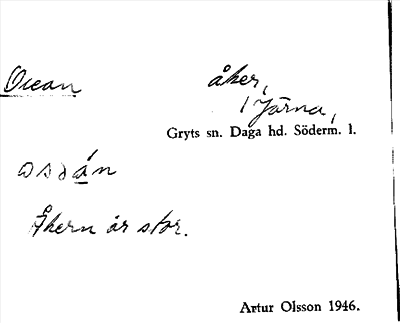 Ocean
åker,
1 Järna,
Gryts sn. Daga hd. Söderm. l.
osəán
Åkern är stor.
Artur Olsson 1946.